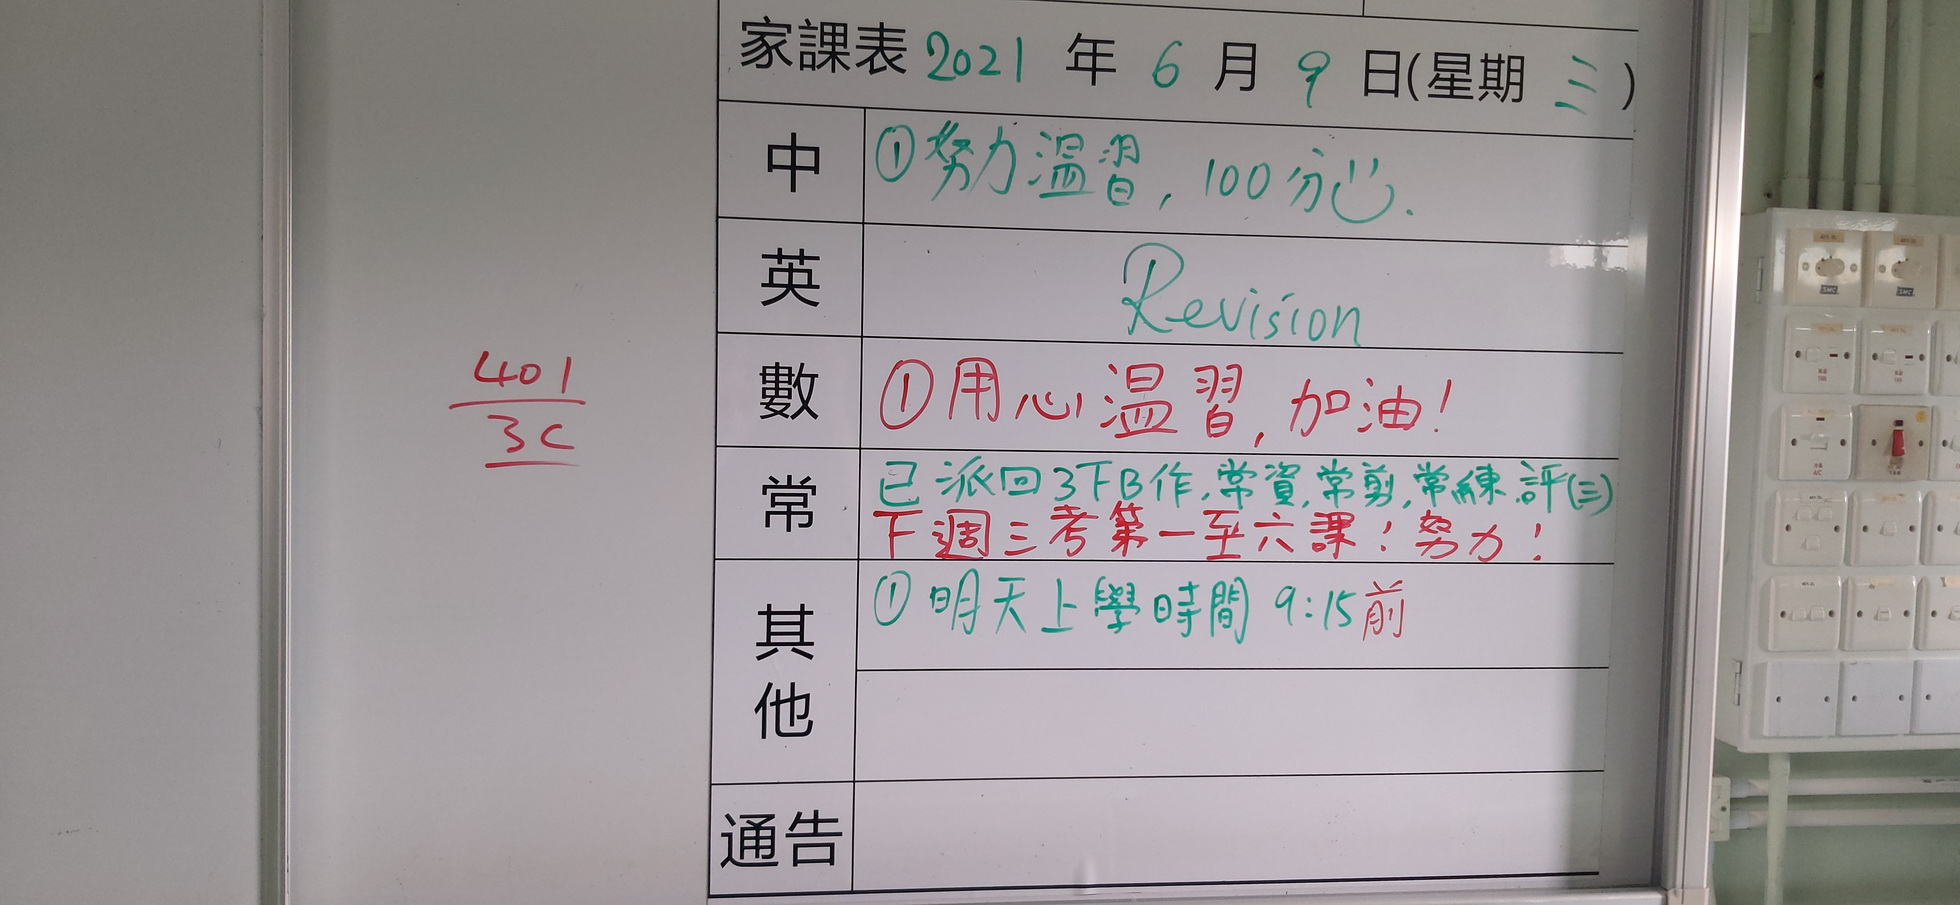 家課表 2021 年 6 月 9 日(星期 三)
中 ①努力温習, 100分.
英 Revision
401
3C
數 ①用心温習, 加油!
常 已派回3下B作,常資,常剪,常練.評(三)
下週三考第一至六課!努力!
①明天上學時間 9:15前
其他
通告